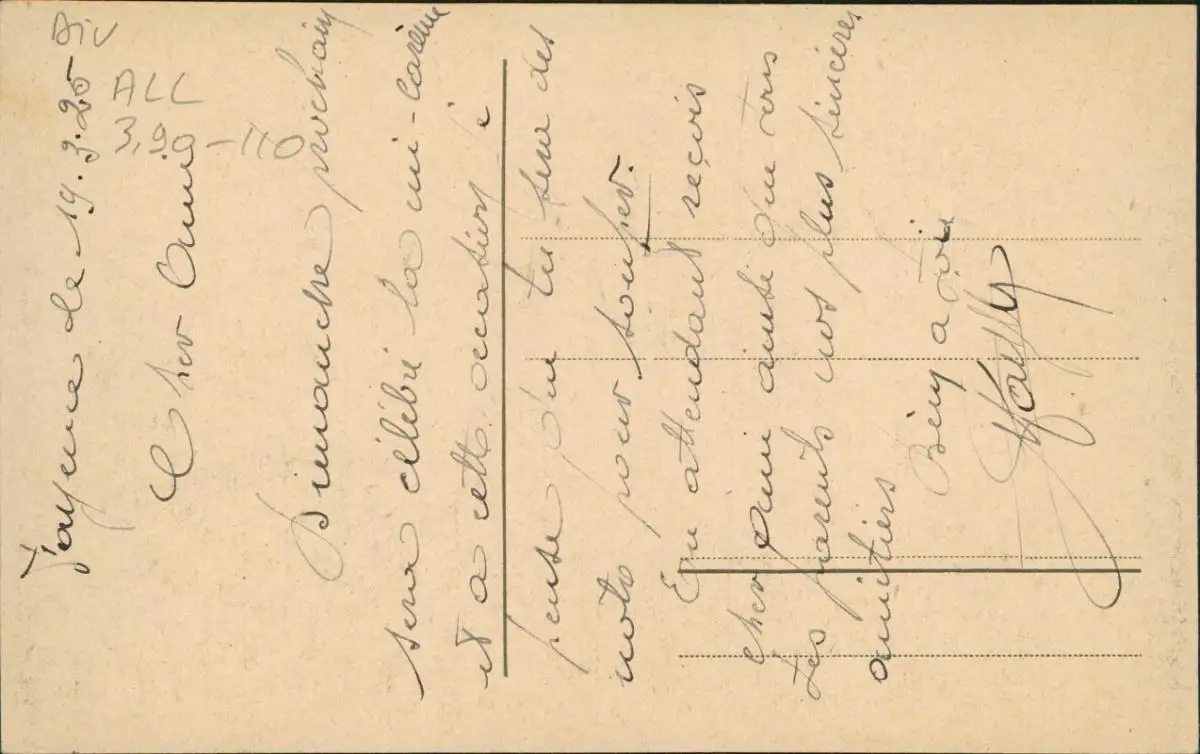 Div
ALL
3,90 - 110
Tavenne le 19.3.25
Cher Ami
Dimanche prochain
sera célébré la mi-carême
et a cette occasion j
pense qu tu sera des
notr pour souper.
En attendant reçois
cher ami ainsi qu tous
tes parents nos plus sincères
amitiers
Bien a toi